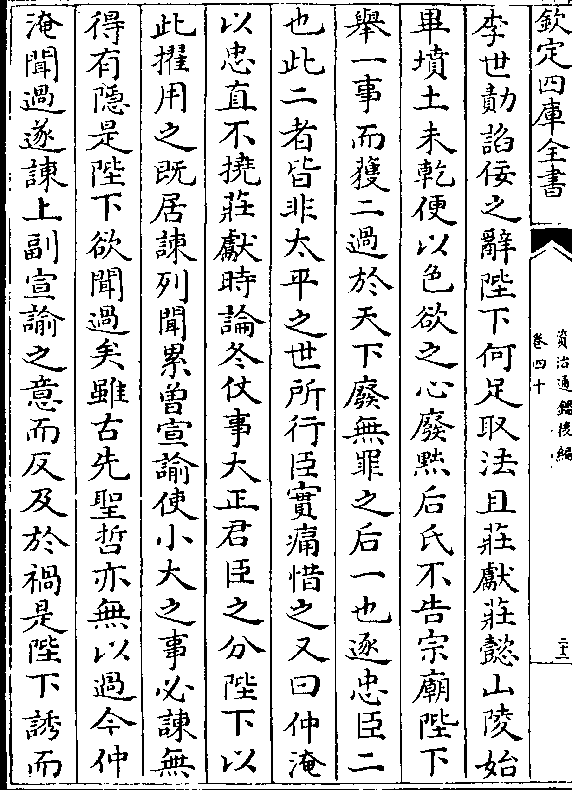 欽定四庫全書
資治通鑑後編
卷四十
二十三
李世勣諂佞之辭陛下何足取法且莊獻莊懿山陵始
畢墳土未乾便以色欲之心廢黜后氏不告宗廟陛下
舉一事而獲二過於天下廢無罪之后一也逐忠臣二
也此二者皆非太平之世所行臣實痛惜之又曰仲淹
以忠直不撓莊獻時論冬仗事大正君臣之分陛下以
此擢用之既居諫列聞累曾宣諭使小大之事必諫無
得有隱是陛下欲聞過矣雖古先聖哲亦無以過今仲
淹聞過遂諫上副宣諭之意而反及於禍是陛下誘而